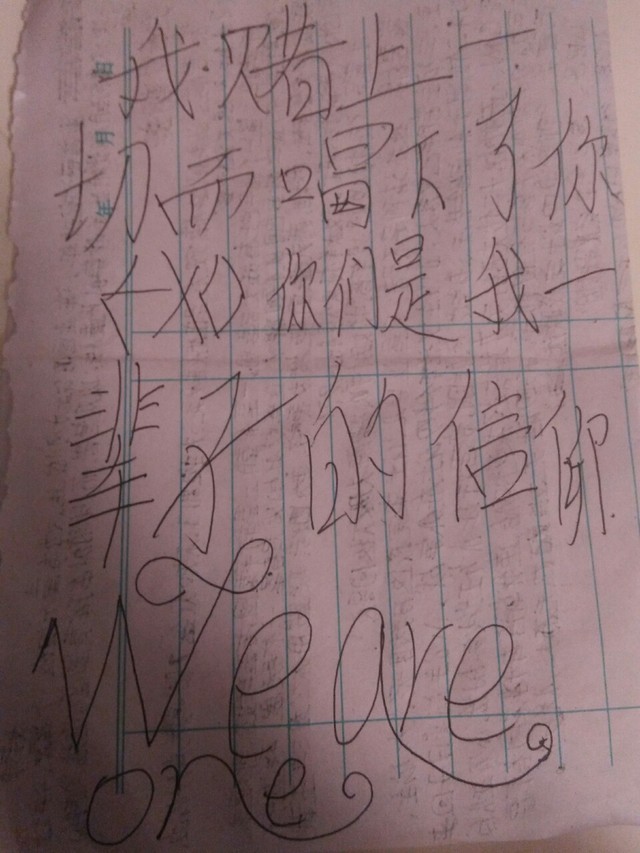 我赌上一
切而唱下了你
《EXO》你们是我一
辈子的信仰
We are
one
年 月 日